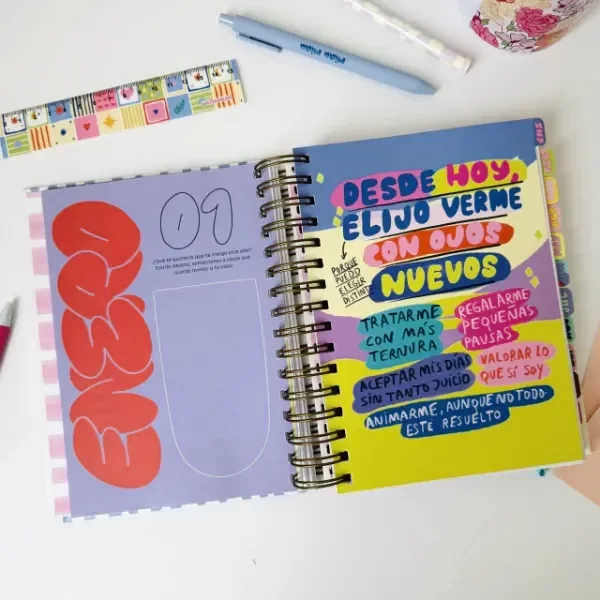 ENERO
01
¿Qué te gustaría que te traiga este año?
Escribí deseos, sensaciones o cosas que
querés invitar a tu vida:
DESDE HOY,
ELIJO VERME
CON OJOS
NUEVOS
PORQUE
PUEDO
ELEGIR
DISTINTO
TRATARME
CON MÁS
TERNURA
REGALARME
PEQUEÑAS
PAUSAS
ACEPTAR MIS DÍAS
SIN TANTO JUICIO
VALORAR LO
QUE SÍ SOY
ANIMARME, AUNQUE NO TODO
ESTE RESUELTO